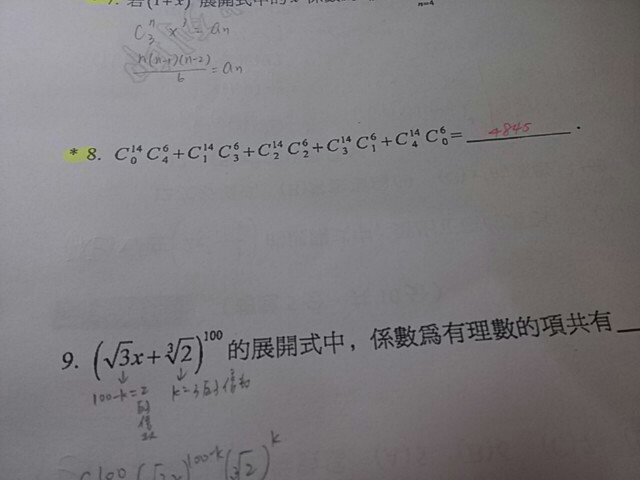 7. 若(1+x) 展開式中的
n=4
C₃ⁿ x³ = aₙ
n(n-1)(n-2)/6 = aₙ
* 8. C₀¹⁴ C₄⁶ + C₁¹⁴ C₃⁶ + C₂¹⁴ C₂⁶ + C₃¹⁴ C₁⁶ + C₄¹⁴ C₀⁶ = 4845 .
9. (√3x + ∛2)¹⁰⁰ 的展開式中，係數為有理數的項共有
100-k=2的倍數 k=3的倍數
C100 (√3x)¹⁰⁰⁻ᵏ (∛2)ᵏ